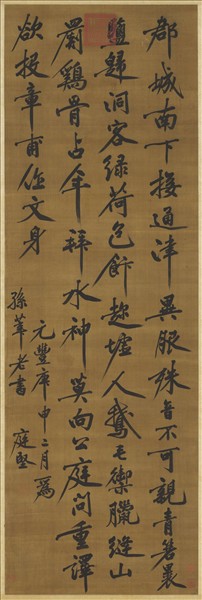 郡城南下接通津異服殊音不可親青箬裹
鹽歸洞客綠荷包飰趂墟人鵞毛禦臘縫山
罽鷄骨占年拜水神莫向公庭問重譯
欲投章甫作文身
元豐庚申二月為
孫莘老書 庭堅